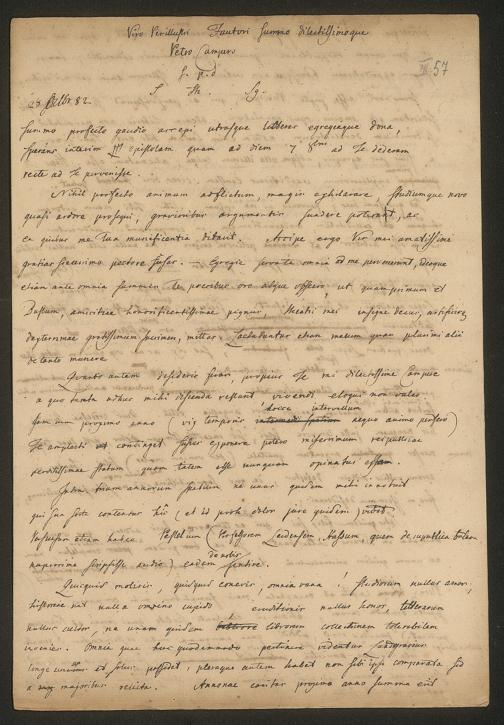 Viro Perillustri Fautori summo dilectissimoque
Petro Campero
S. p. d
S Th. Sg.
57
28 82.
Summo profecto gaudio arripui utrasque litteras egregiaque dona,
sperans interim epistolam quam ad diem 7 8bris ad Te dederam
recte ad Te pervenisse.
Nihil profecto animum adflictum, magis exhilarare, studiumque novo
quasi ardore prosequi, gravioribus argumentis suadere poterant, ac
ea quibus me Tua munificentia ditavit. Accipe ergo Vir mei amatissime
gratias sincerissimo pectore fusas. — Egregie servata omnia ad me pervenerunt,
etiam ante omnia summis Te precibus oro atque obsecro, ut quamprimum et
Bustum, amicitiae honorificentissimae pignus, Musei mei insigne decus, artificis
dexterrimae mittas. Laetabuntur etiam mecum quam plurimi alii
de tanto munere
Quanto autem desiderio feror, propius Te mi dilectissime Campere
a quo tanta adhuc mihi discenda restant, vivendi eloqui non valeo
proximo anno (vix temporis intervallum aequo animo perfero)
Te amplecti continget fusius exponere potero miserrimum reipublicae
statum quam talem esse nunquam opinatus essem.
Intra trium annorum spatium ne unus quidem mihi innotuit
qui sua sorte contentus sit (et id proh dolor jure quidem)
etiam habeo Pestelium (Professorem Leidensem, Hassum, quem de republica
nuperrime scripsisse audio) eadem sentire.
Quicquid moliris, quidquid conaris, omnia vana! studiorum nullus amor,
historiae nat nulla omnino cupido! eruditionis nullus honor, litterarum
nullus cultor, ne unam quidem librorum collectionem tolerabilem
invenies. Omnia quae huc quodammodo pertinere videntur Landgravius
longe et solus possidet, pleraque autem habet non sibi ipsi comparata sed
a majoribus relicta. Annonae caritas proximo anno summa erit